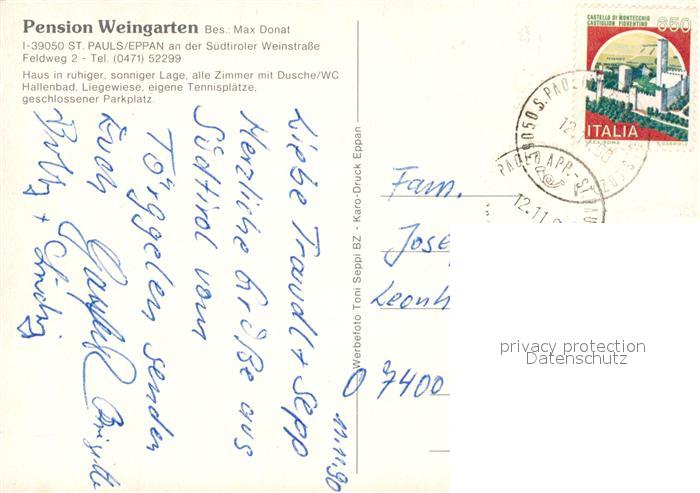 Pension Weingarten Bes.: Max Donat
I-39050 ST. PAULS/EPPAN an der Südtiroler Weinstraße
Feldweg 2 - Tel. (0471) 52299
Haus in ruhiger, sonniger Lage, alle Zimmer mit Dusche/WC
Hallenbad, Liegewiese, eigene Tennisplätze,
geschlossener Parkplatz.
11.11.90
Liebe Traudl + Sepp
Herzliche Grüße aus
Südtirol vom
Törggelen senden
Euch
Brigitte
Werbefoto Toni Seppi BZ - Karo-Druck Eppan
CASTELLO DI MONTECCHIO
CASTIGLION FIORENTINO
650
ITALIA
39050 S. PAOLO
12.11.90
PAOLO APP. - ST. PAU
12.11.9
Fam.
Jose
Leonh
O 7400
privacy protection
Datenschutz